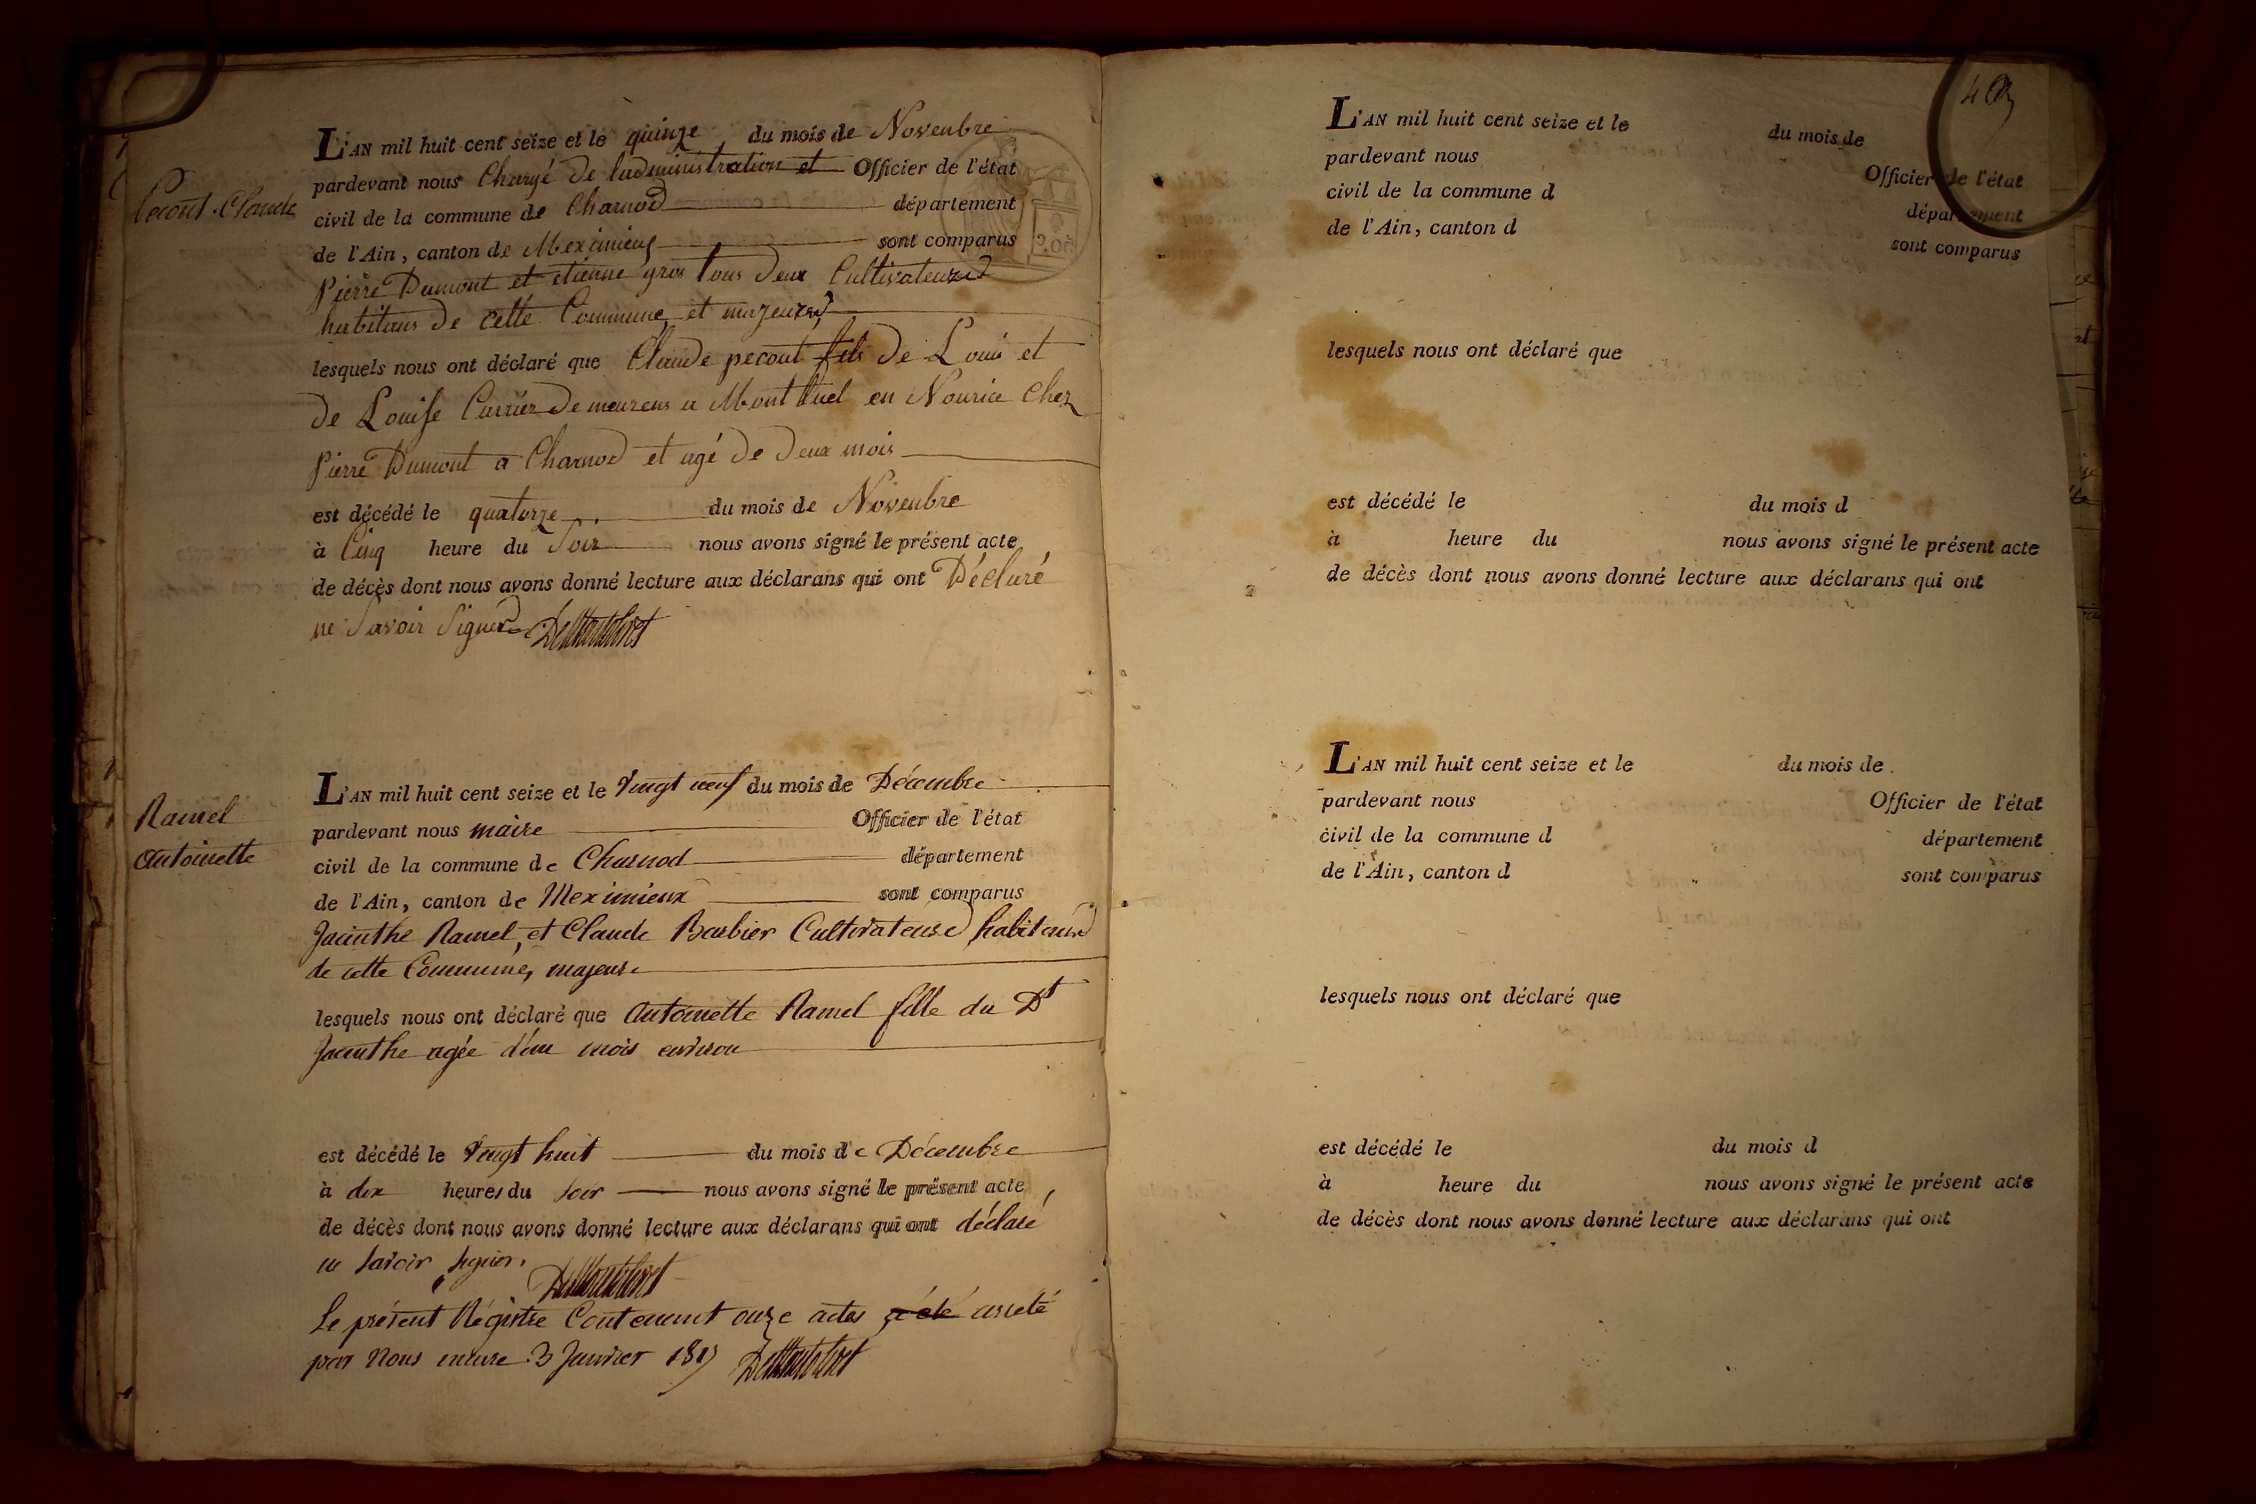 Pecout Claude
L'AN mil huit cent seize et le quinze du mois de Novenbre
pardevant nous Chargé de l'administration et Officier de l'état
civil de la commune de Charnod département
de l'Ain, canton de Meximieux sont comparus
Pierre Dumont et etienne gros tous deux Cultivateurs
habitans de cette Commune et majeurs
lesquels nous ont déclaré que Claude pecout fils de Louis et
de Louise Currier demeurens a Montluel en Nourice chez
Pierre Dumont a Charnod et agé de deux mois
est décédé le quatorze du mois de Novenbre
à Cinq heure du Soir nous avons signé le présent acte
de décès dont nous avons donné lecture aux déclarans qui ont Déclaré
ne Savoir Signer
Ramel
Antoinette
L'AN mil huit cent seize et le Vingt neuf du mois de Décembre
pardevant nous maire Officier de l'état
civil de la commune de Charnod département
de l'Ain, canton de Meximieux sont comparus
Jacinthe Ramel, et Claude Barbier Cultivateurs habitans
de cette Commune, majeurs
lesquels nous ont déclaré que Antoinette Ramel fille du Dt
Jacinthe agée d'un mois environ
est décédé le Vingt huit du mois de Décembre
à dix heures du soir nous avons signé le présent acte
de décès dont nous avons donné lecture aux déclarans qui ont déclaré
ne savoir signer.
Le présent Régistre Contenant onze actes a été arreté
par Nous maire 3 Janvier 1817
L'AN mil huit cent seize et le du mois de
pardevant nous Officier de l'état
civil de la commune d département
de l'Ain, canton d sont comparus
lesquels nous ont déclaré que
est décédé le du mois d
à heure du nous avons signé le présent acte
de décès dont nous avons donné lecture aux déclarans qui ont
L'AN mil huit cent seize et le du mois de
pardevant nous Officier de l'état
civil de la commune d département
de l'Ain, canton d sont comparus
lesquels nous ont déclaré que
est décédé le du mois d
à heure du nous avons signé le présent acte
de décès dont nous avons donné lecture aux déclarans qui ont